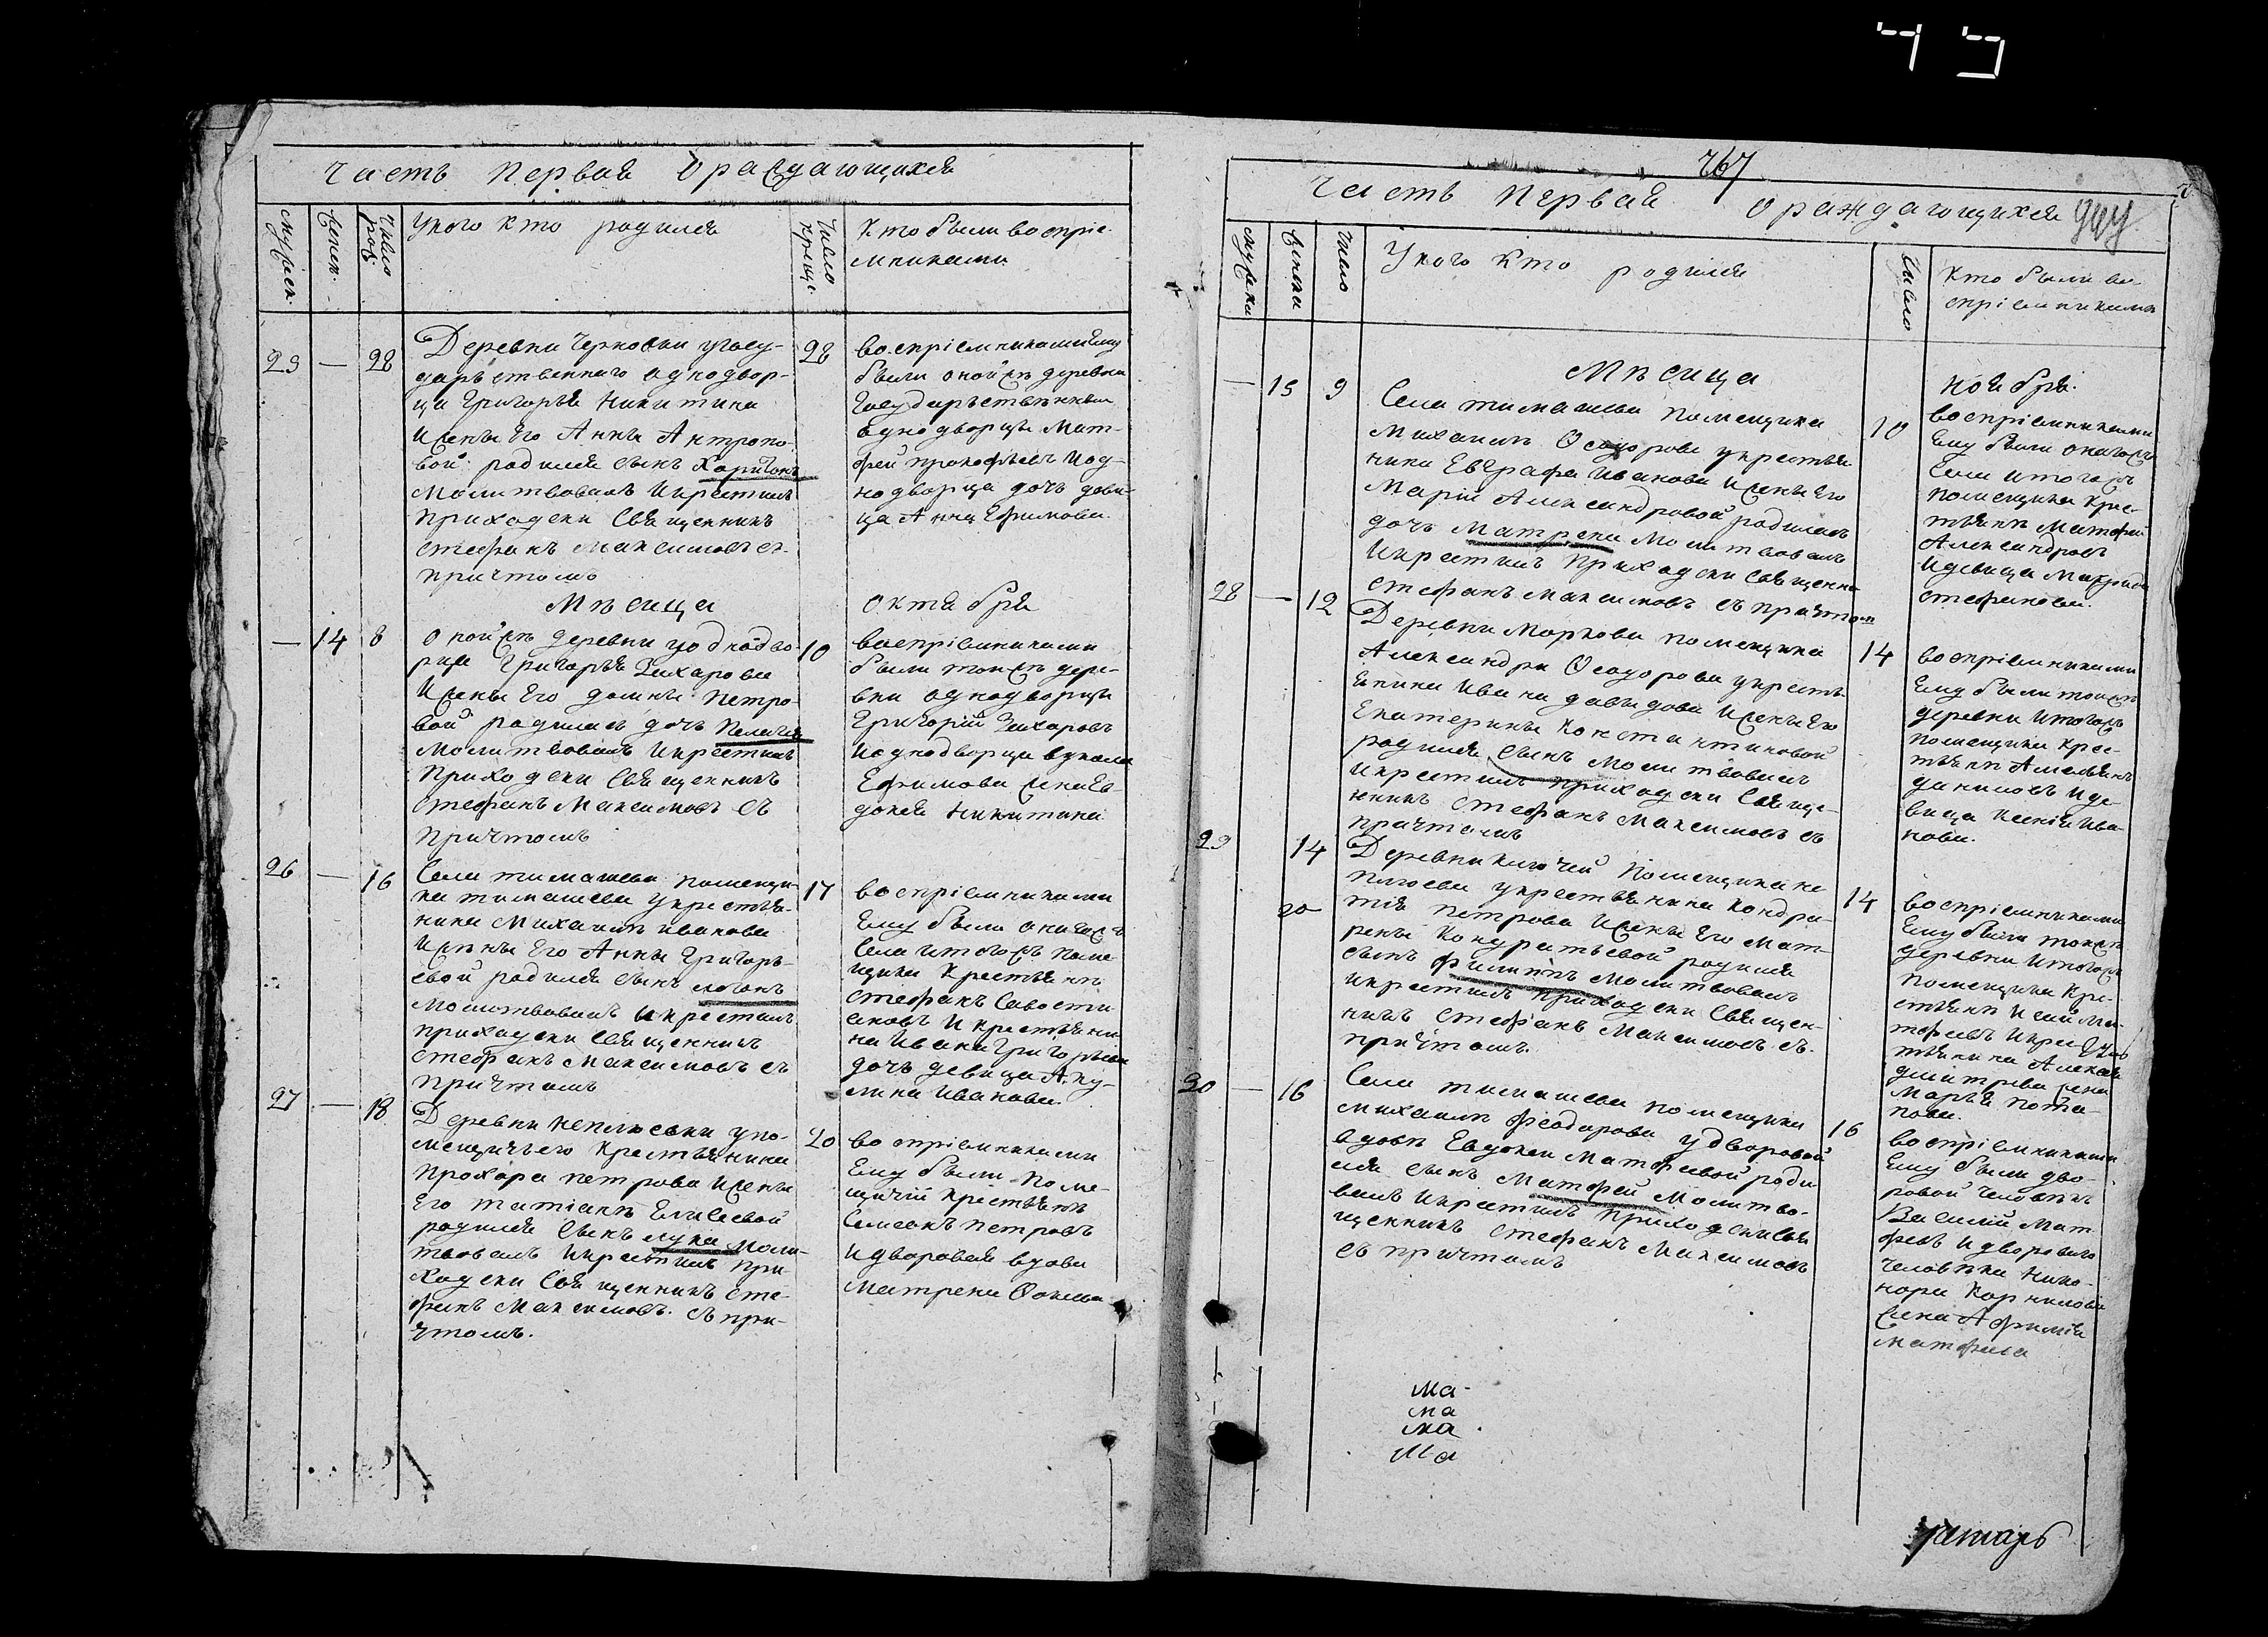 Часть первая ораждающихся
мужеск.
женск.
Число рож.
Укого кто родился
Число креще.
Кто были воспріе-
мниками
29 — 28
Деревни Черновки угосу-
дарственнаго однодвор-
ца Григорья Никитина
Ижены Его Анны Антропо-
вой родился сынъ Харитонъ
Молитвовалъ Икрестилъ
приходски Священникъ
Стефанъ Максимовъ съ
причтомъ
28
воспріемниками ему
были оной жъ деревни
Государственныи
однодворцы Мат-
фей прокофьевъ Иод-
нодворца дочь деви-
ца Анна Ефимова
Мѣсяца
октября
— 14 8
оной жъ деревни уоднодво-
рца Григорья Захарова
Ижены Его домны Петро-
вой родилась дочь Пелагея
Молитвовалъ Икрестилъ
Приходски Священникъ
Стефанъ Максимовъ съ
причтомъ
10
воспріемниками
были тойжъ дере-
вни однодворцы
Григорій Захаровъ
Иоднодворца
Ефимова жена Ев-
докея Никитина
26 — 16
Села тимашева помещи-
ка тимашева укрестья-
нина Михаилы Иванова
Ижены Его Анны Григорь-
евой родился сынъ
Молитвовалъ Икрестилъ
приходски Священникъ
Стефанъ Максимовъ съ
причтомъ
17
воспріемниками
Ему были онагожъ
Села Итогожъ поме-
щика Крестьянъ
Стефанъ Савости-
яновъ Икрестьяни-
на Ивана Григорьева
дочь девица Аку-
лина Иванова.
27 — 18
Деревни неплюевки упо-
мещичьего Крестьянина
Прохара петрова Ижены
Его татіаны Елисевой
родился сынъ лука моли-
твовалъ Икрестилъ при-
ходски Священникъ Сте-
фанъ Максимовъ. съ при-
чтомъ.
20
воспріемниками
Ему были поме-
щичій крестьянъ
Семионъ петровъ
Идворовая вдова
матрена Фокина
767
Часть первая ораждающихся
мужска
женска
число
Укого кто родился
Число
Кто были во-
спріемниками
Мѣсяца
ноября.
— 15 9
Села тимашева помещика
Михаила Ѳеодорова укрестья-
нина Евграфа Иванова Ижены Его
Маріи Александровой родилась
дочь Матрена Молитвовалъ
Икрестилъ приходски священни
Стефанъ Максимовъ съ причтомъ
10
воспріемниками
Ему были онагожъ
Села Итогожъ
помещика Крес-
тьянъ Матфей
Александровъ
Идевица
Стефанова.
28 — 12
Деревни Марковки помещика
Александра Ѳеодорова укресть-
янина Ивана давыдова Ижены Его
Екатерины Константиновой
родился сынъ Молитвовалъ
Икрестилъ приходски Священ-
никъ Стефанъ Максимовъ съ
причтомъ
14
воспріемниками
Ему были тойжъ
деревни Итогожъ
помещика Крес-
тьянъ Амельянъ
даниловъ Иде-
вица Ксенія Ива-
нова.
29 14
20
Деревни Ключей Помещика не-
плюева укрестьянина Кондра-
тія петрова Ижены Его Мат-
рены Кондратьевой родился
сынъ Филиппъ Молитвовалъ
Икрестилъ приходски Священ-
никъ Стефанъ Максимовъ съ.
причтомъ.
14
воспріемниками
Ему были тойжъ
деревни Итогожъ
Помещика Кре-
стьянъ Исай Ма-
тфеевъ
тьянина Алексея
дмитрева жена
Марья пота-
пова.
30 — 16
Села тимашева помещика
михаилы феодорова удворовой
вдовы Евдокеи Матфевой роди
лся сынъ Матфей Молитво-
валъ Икрестилъ Приходски Свя
щенникъ Стефанъ Максимовъ
съ причтомъ
16
воспріемниками
Ему были дво-
ровой человѣкъ
Василій Мат-
февъ Идвороваго
человѣка Нико-
нора Корнилова
жена Афимія
Матфева
ма-
ма
ма
Ма